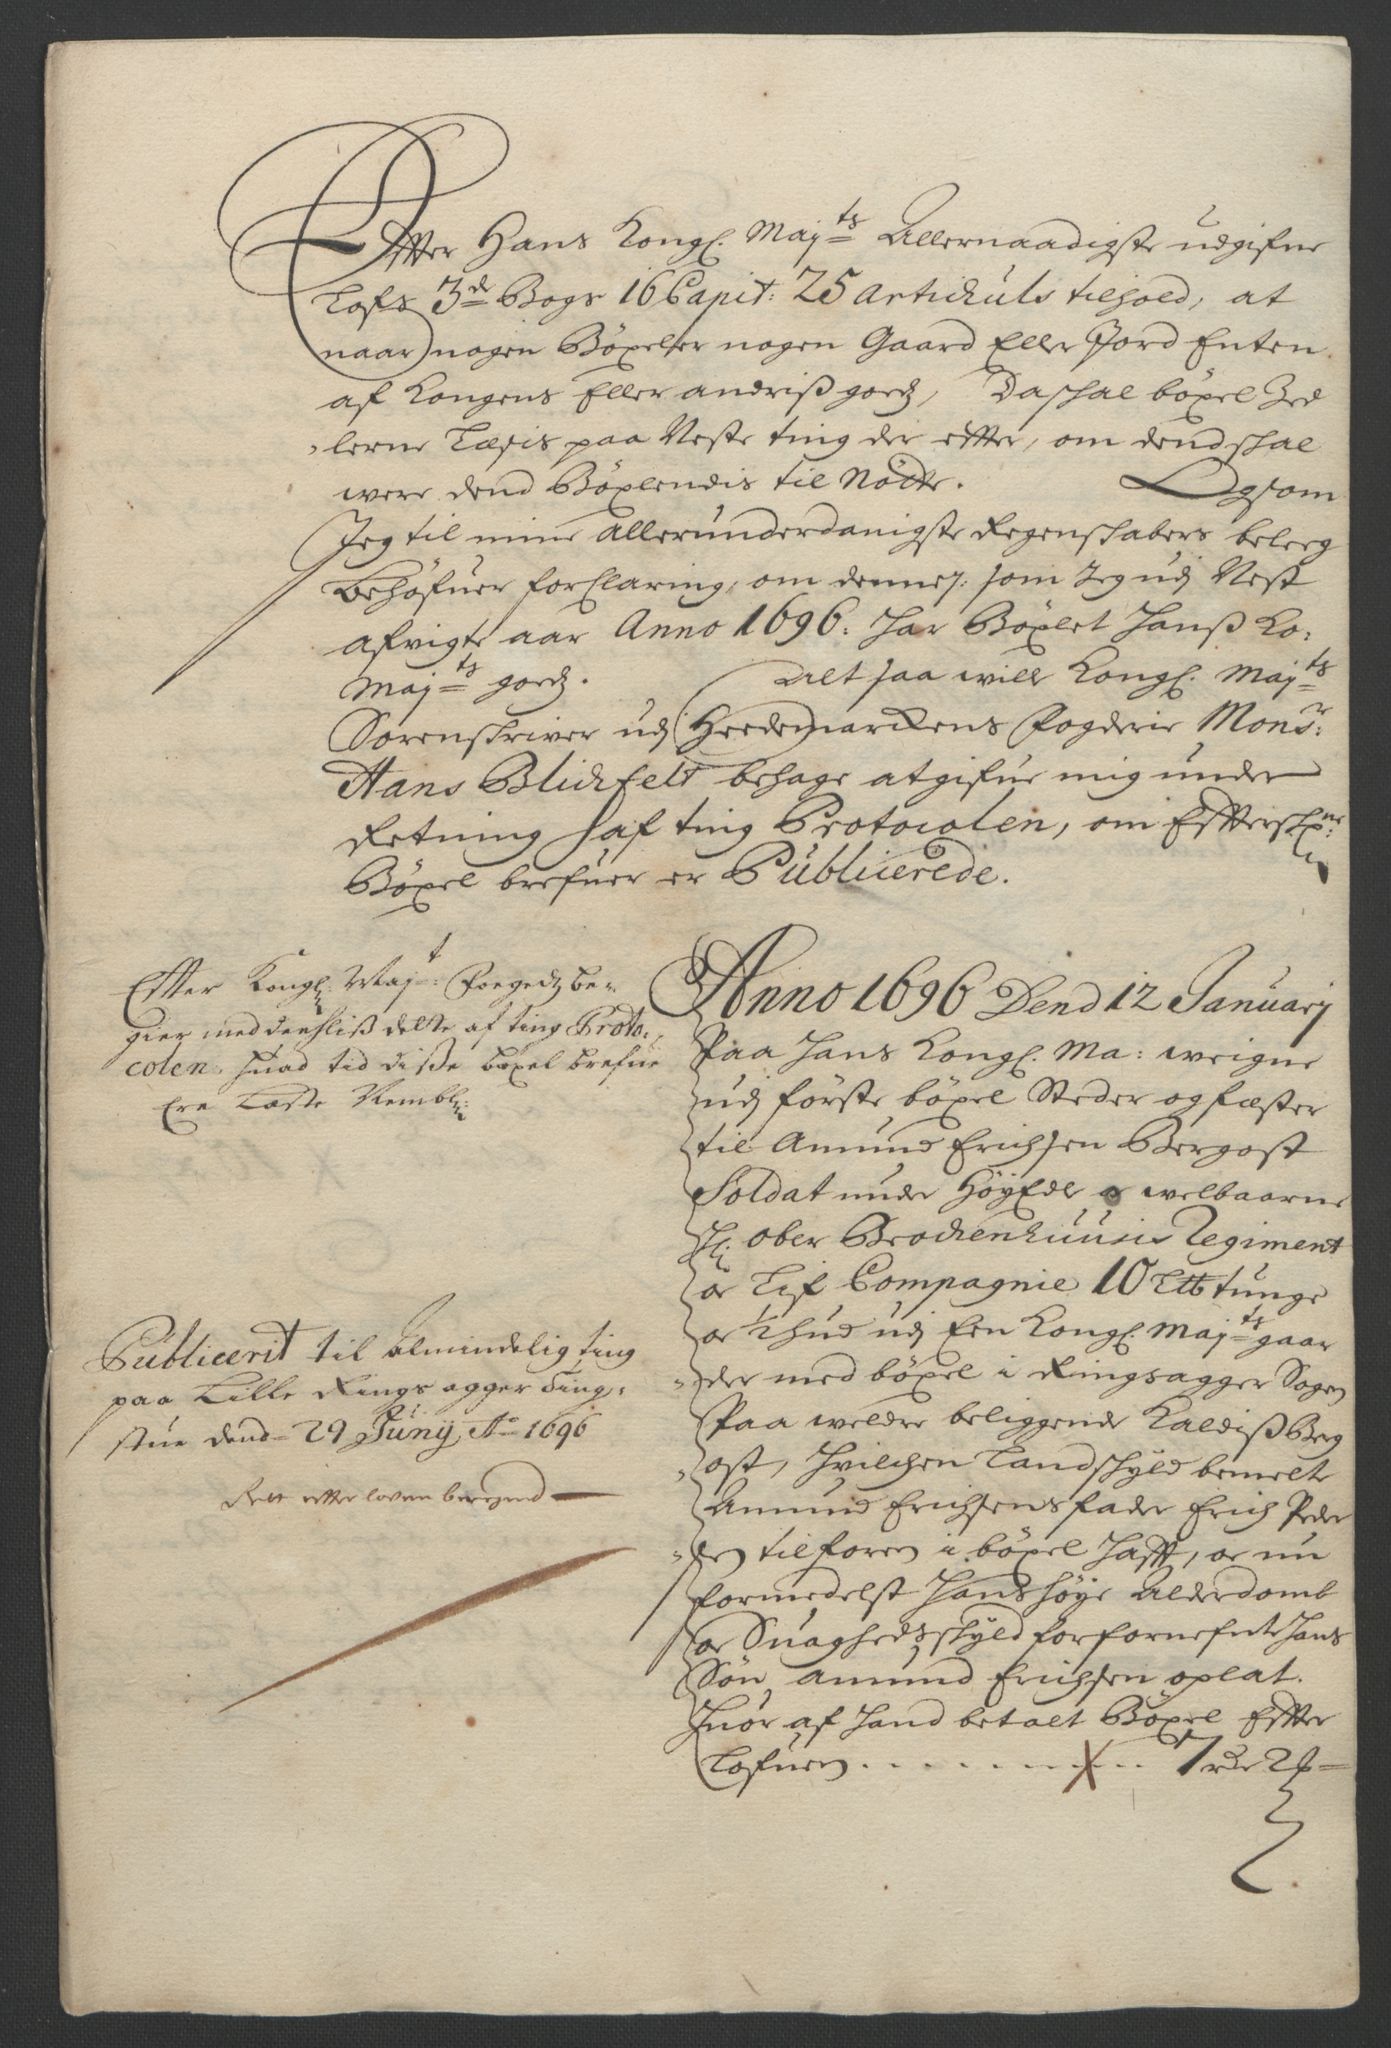 Effter Hans Kongl. Maj:ts Allernaadigste udgifne
Lofs 3de Bogs 16 Capit: 25 Articuls tilhold, at
naar nogen Böxeler nogen Gaard Eller Jord Enten
af Kongens Eller andris godz, Da skal böxel Zed
lerne Læsis paa Neste ting der effter, om dend skal
were dend Böxlendis til Nötte. Og som
Jeg til mine allerunderdanigste Regenskabers beleeg
behöfuer forClaring, om dennej: som Jeg udj Nest
afvigte aar Anno 1696: har Böxlet Hanß Ko:
Maj:ts godz. Alt saa will Kongl. Maj:ts
Sorenskriver udj Heedemarckens fogderie Mons:r
Hans Blichfelt behage at gifue mig under
Retning af ting Protocolen, om Effterskr:ne
Böxel brefuer er Publicerede.
Effter Kongl: Maj:t foegedz be-
gier meddeehliß dette af ting Proto-
colen, huad tid diße böxel brefue
Ere Læste Nembl:
Publicerit til almindelig ting
paa Lille Ringsagger ting-
stue dend 29 Junij Ao 1696
Rett efter loven beregned
Anno 1696 Dend 12 Januarj
Paa Hans Kongl. Ma: weigne
udj förste böxel Steder og fæster
til Amund Erichsen Bergost
Soldat under HöyEdle oc welbaarne
H: ober Brochenhuusis Regiment
oc Lif Compagnie 10 Ltb tunge
oc ½ hud udj Een Kongl. Maj:ts gaar
der med böxel i Ringsagger Sogen
Paa weldre beliggende Kaldiß Berg
ost, Hvilchen Landskyld bemelte
Amund Erichsens fader Erich Peder
sen tilforen i böxel hafft, oc nu
formedelst Hans höye Alderdomb
oc Suaghedz skyld for fornefnte Hans
Sön Amund Erichsen oplat.
Huor af Hand betalt Böxel Effter
Lofuen . . . . . . . . 7 rdr 2 ß